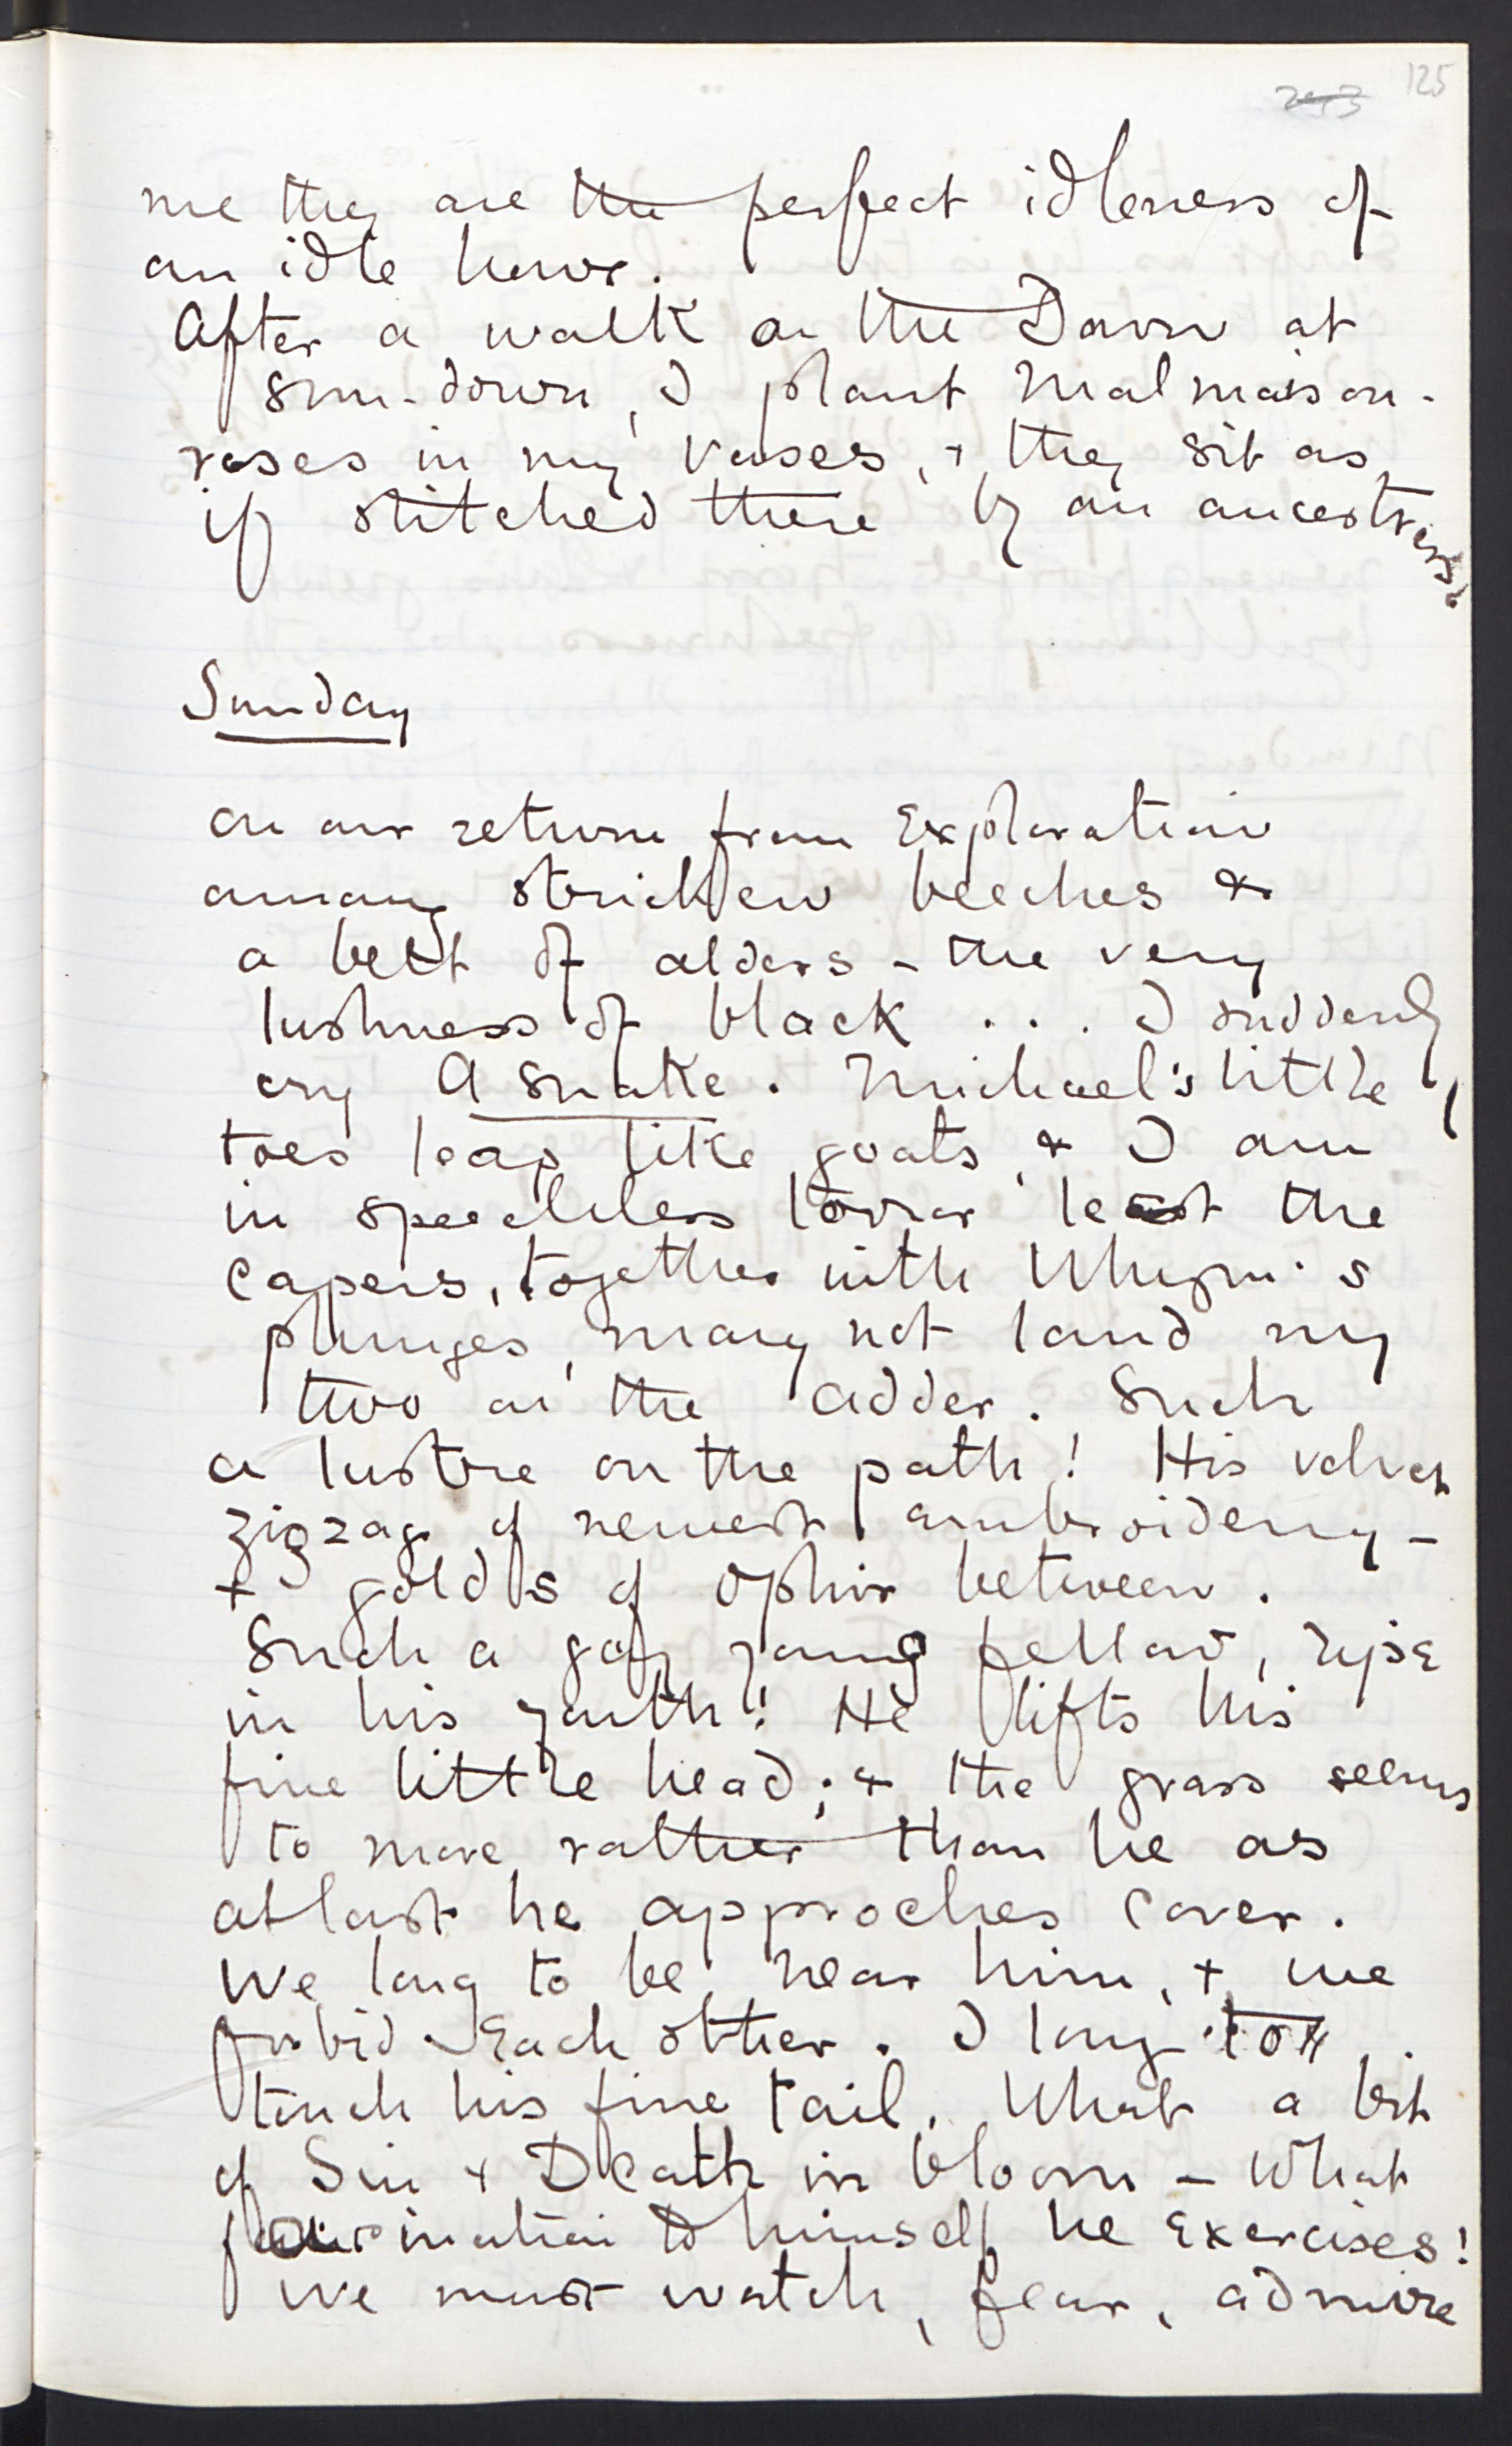 125
me they are the perfect idleness of
an idle hour.
After a walk on the Down at
sun-down, I plant Malmaison-
roses in my vases, + they sit as
if stitched there by an ancestress.
Sunday
On our return from Exploration
among stricken beeches &
a belt of alders - the very
lushness of black ... I suddenly
cry A snake. Michael's little
toes leap like goats, & I am
in speechless terror lest the
capers, together with Whym's
plunges, may not land my
two on the adder. Such
a lustre on the path! His velvet
zigzag of newest embroidery -
+ golds of Ophir between.
Such a gay young fellow, ripe
in his youth! He lifts his
fine little head; & the grass seems
to move rather than he as
at last he approches cover.
We long to be near him, + we
forbid Each other. I long to
touch his fine tail. What a bit
of Sin & Death in bloom - What
fascination to himself he Exercises!
We must watch, fear, admire